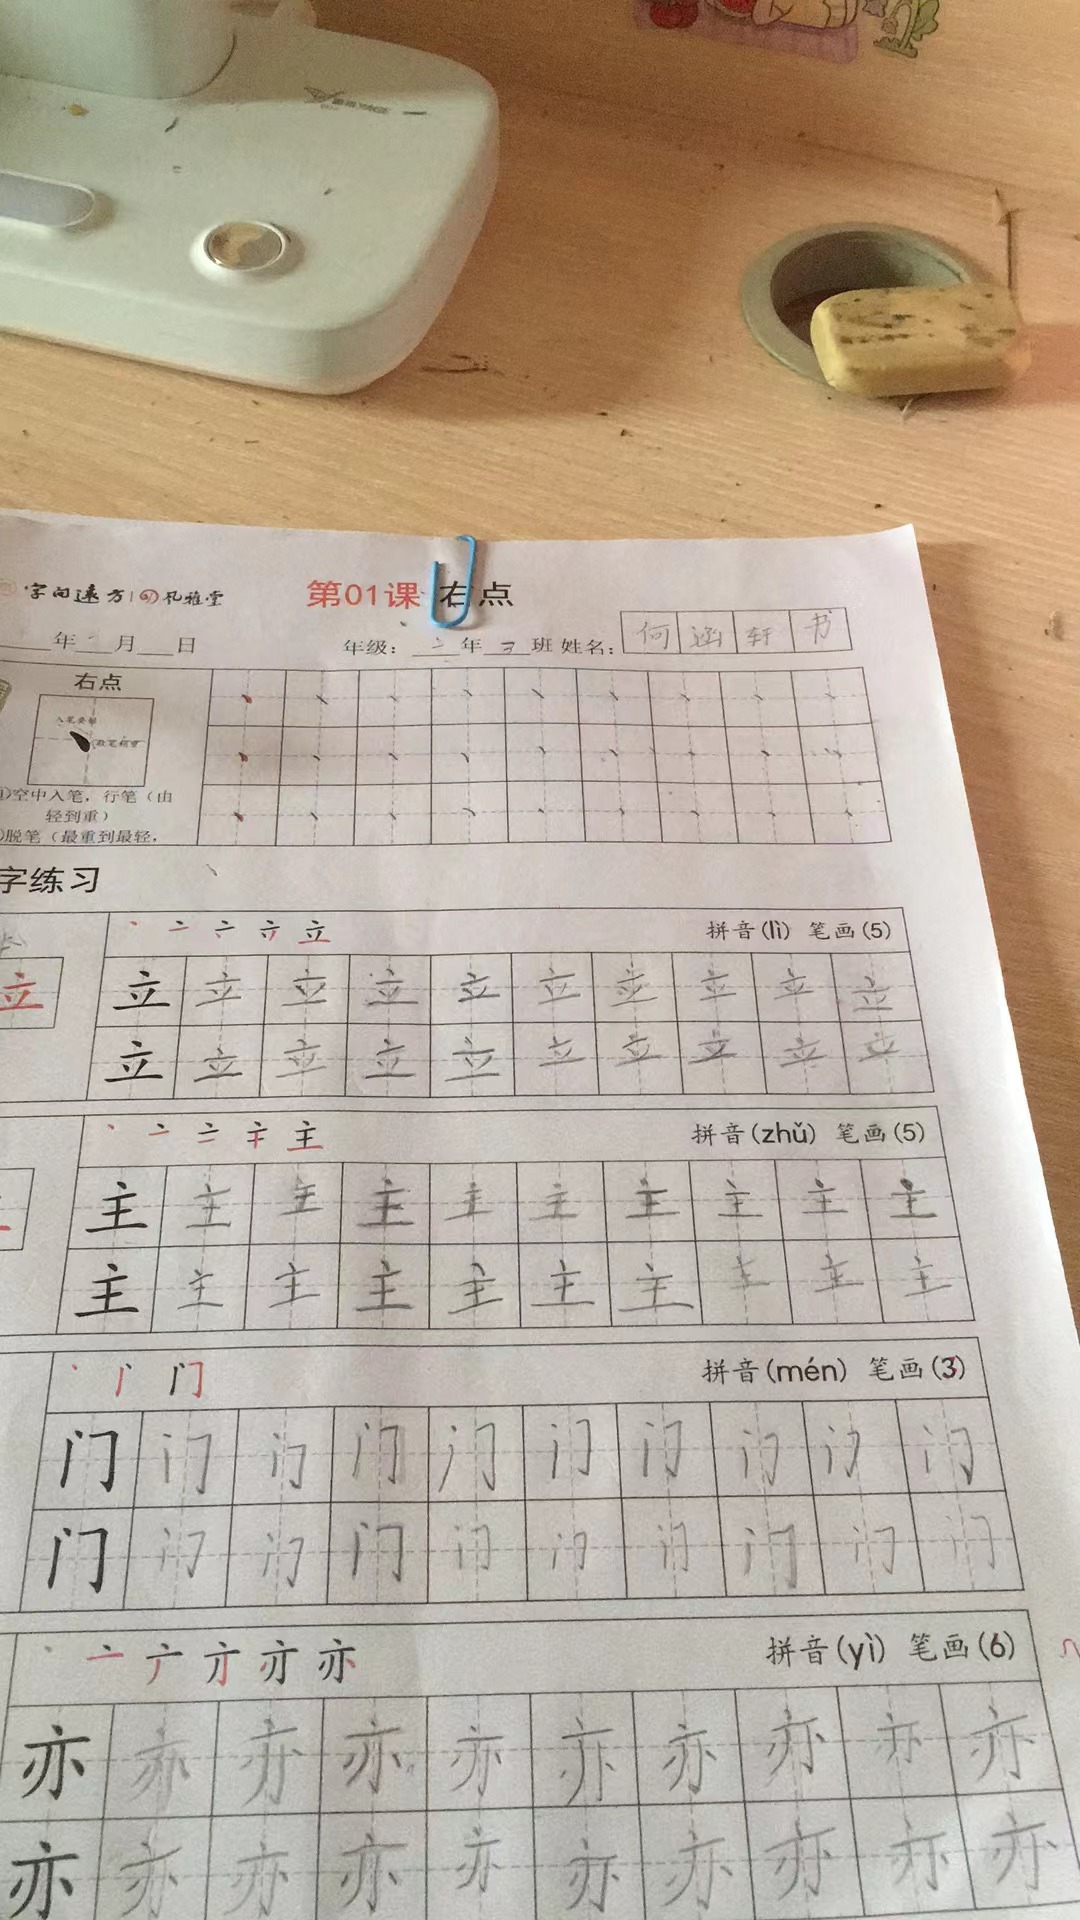 字向远方 风雅堂
第01课 右点
年 月 日 年级：二年三班 姓名：何涵轩书
右点
入笔要轻
收笔稍重
①空中入笔，行笔（由
轻到重）
②脱笔（最重到最轻，
字练习
立 拼音(lì) 笔画(5)
立 立 立 立 立 立 立 立 立 立 立
立 立 立 立 立 立 立 立 立 立
主 拼音(zhǔ) 笔画(5)
主 主 主 主 主 主 主 主 主 主
主 主 主 主 主 主 主 主 主 主
门 拼音(mén) 笔画(3)
门 门 门 门 门 门 门 门 门 门
门 门 门 门 门 门 门 门 门 门
亦 拼音(yì) 笔画(6)
亦 亦 亦 亦 亦 亦 亦 亦 亦 亦
亦 亦 亦 亦 亦 亦 亦 亦 亦 亦